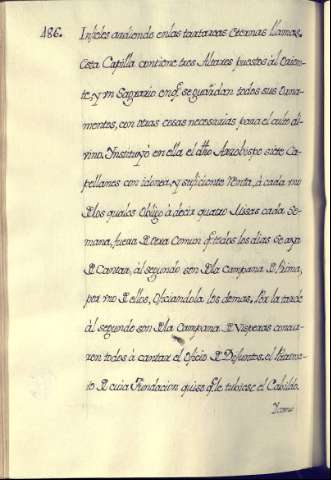 186. Infieles ardiendo en las tartareas Eternas llamas.
Esta Capilla contiene tres Altares puestos àl Orien-
te, y un Sagrario en q̃ se guardan todos sus Orna-
mentos, con otras cosas necesarias para el culto di-
vino. Instituyò en ella el dho Arzobispo siete Ca-
pellanes con idonea, y suficiente renta, à cada uno
de los quales obligò à decir quatro Misas cada Se-
mana, fuera de otra Comun q̃ todos los dias se avia
de Cantar, àl segundo son de la campana de Prima,
por uno de ellos, oficiandola los demas. Por la tarde
àl segundo son de la Campana de Visperas concur-
ren todos à cantar el Oficio de Defuntos. el Patrona-
to de cuia Fundacion quiso q̃ le tubiese el Cabildo.